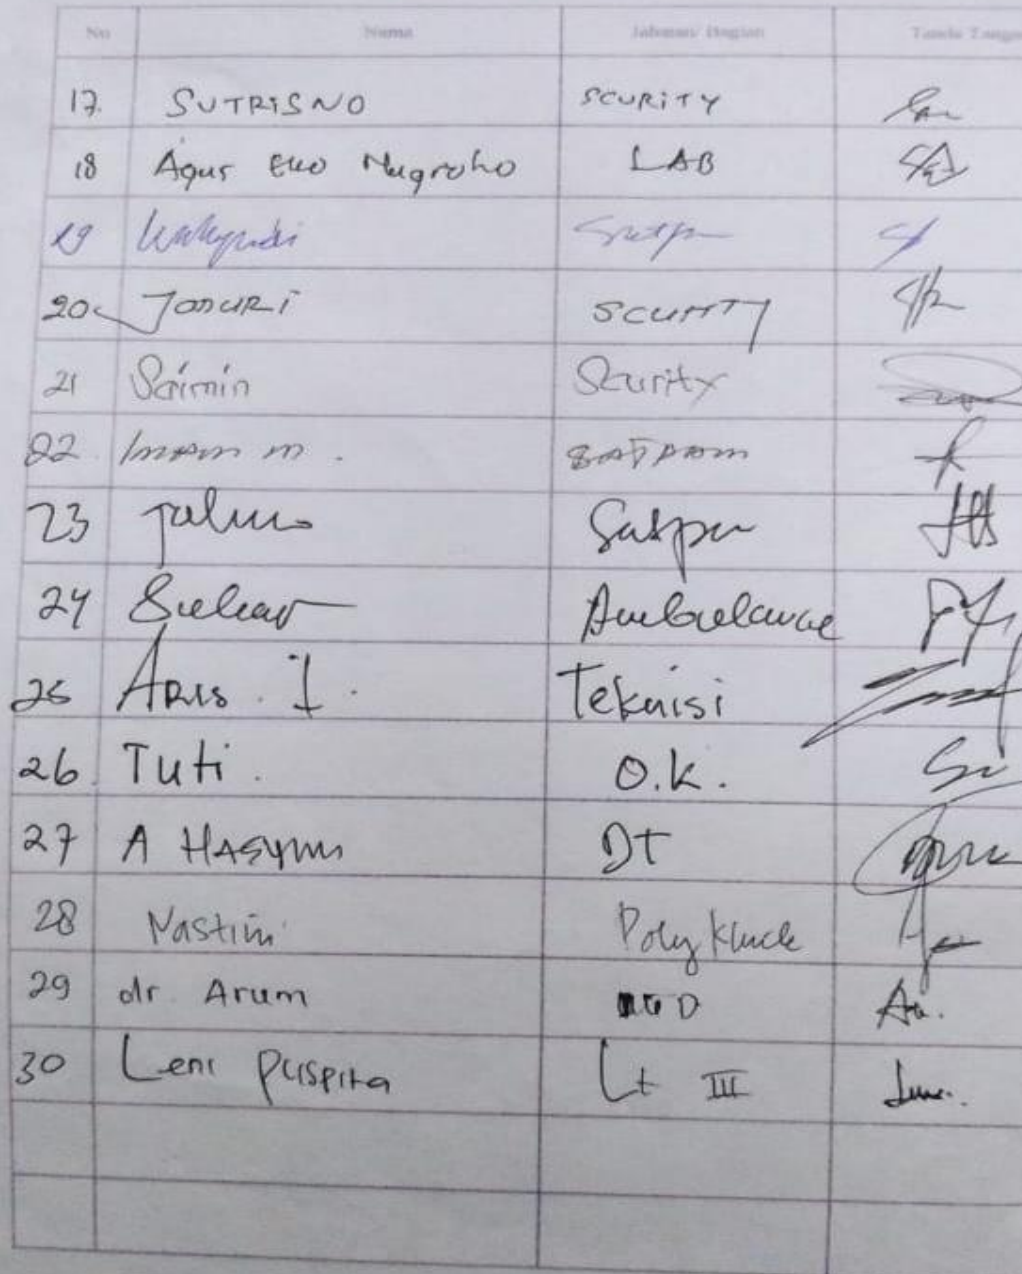 No Nama Jabatan/ Bagian Tanda Tangan
17. SUTRISNO SCURITY
18 Agus Eko Nugroho LAB
19 Wahyudi Satpam
20. JODURI SCURITY
21 Saimin Scurity
22. Imam m. SATPAM
23 Satpam
24 Ambulance
25 ARIS. I. Teknisi
26. Tuti. O.K.
27 A HASYIM DT
28 Nastiti Poly Klinik
29 dr. Arum
30 Leni Puspita Lt III